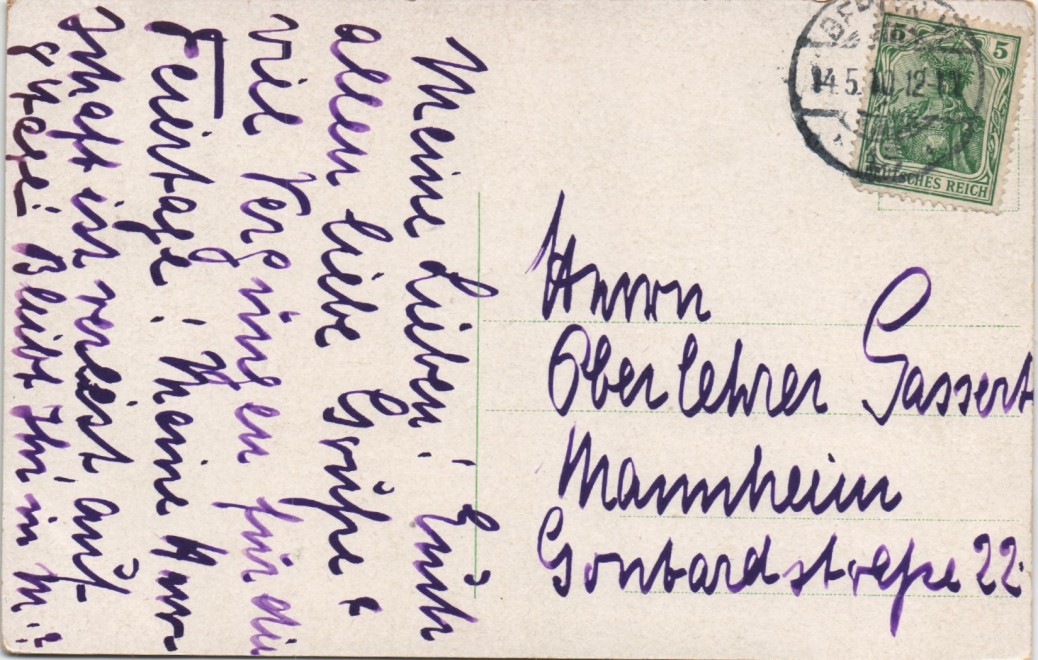 Meine Lieben! Euch
allen liebe Grüße &
viel Vergnügen für die
Feiertage! Meine Herr-
schaft ist verreist auf
Bleibt Ihr in M.?
Herrn
Oberlehrer Gassert
Mannheim
Gontardstraße 22.
BERLIN
14.5.10.12-1N
5
DEUTSCHES REICH